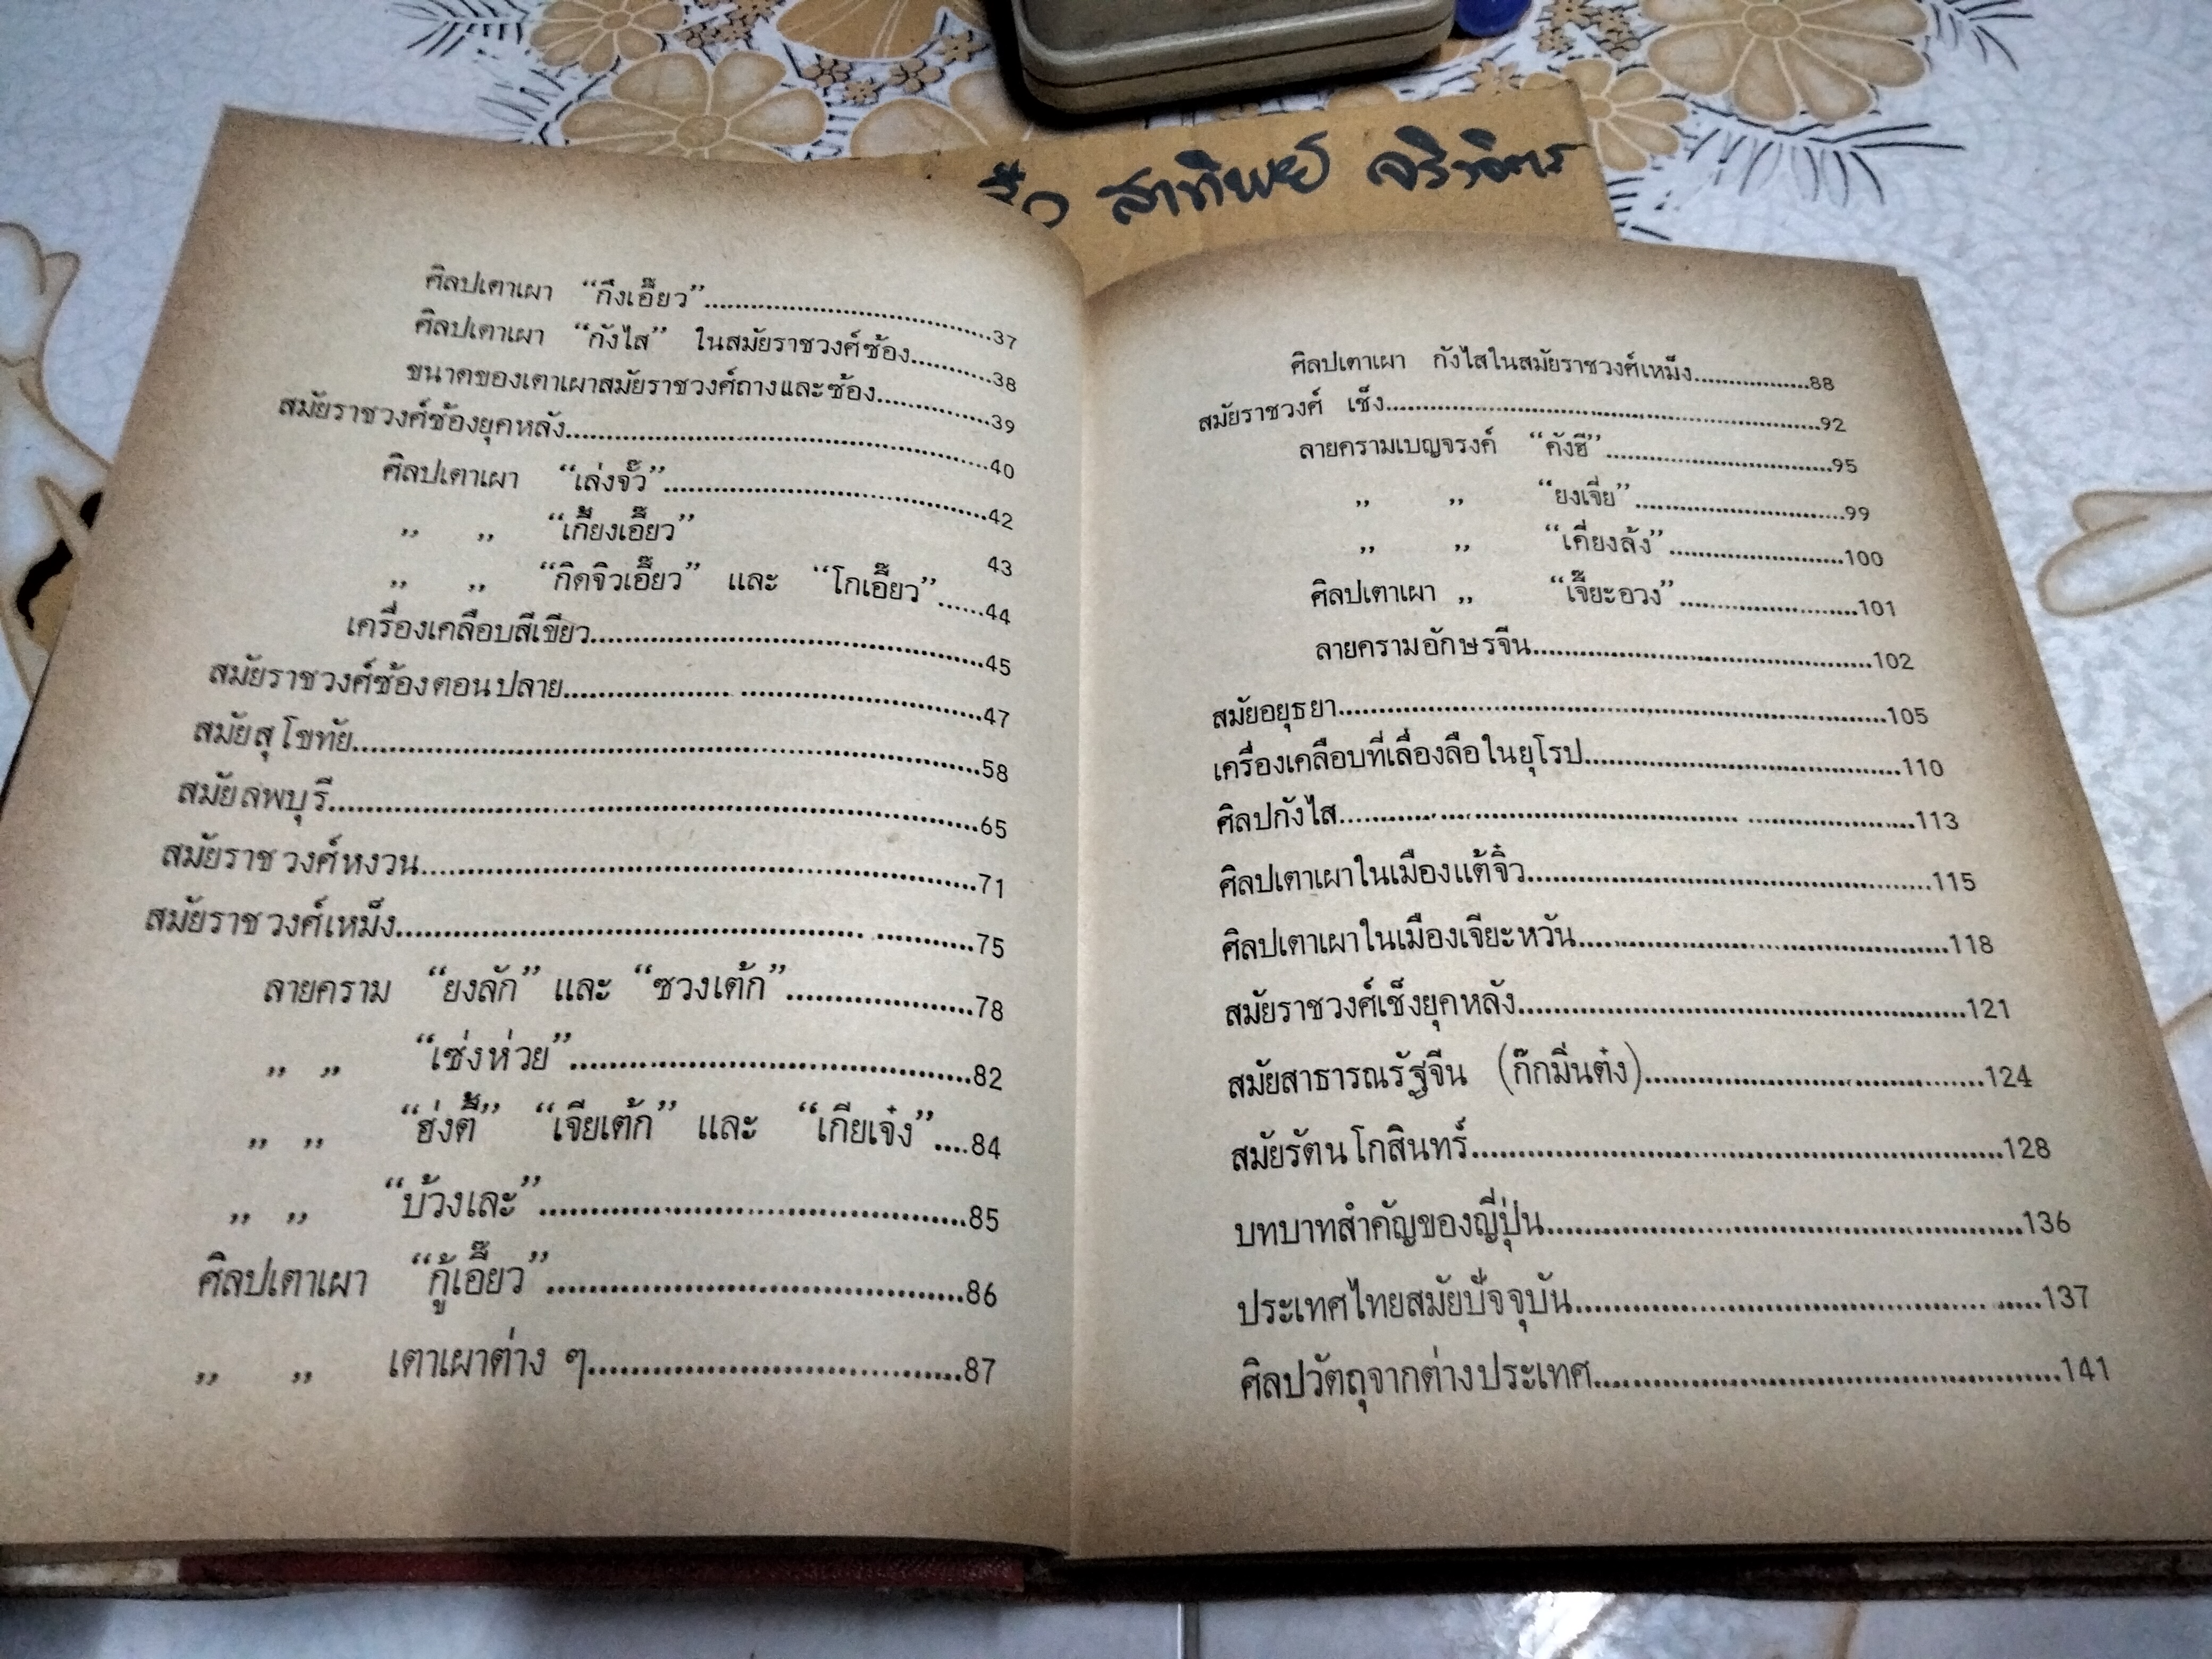 สาทิพย์
ศิลปเตาเผา “กึงเอี๊ยว”....................37
ศิลปเตาเผา “กังไส” ในสมัยราชวงศ์ซ้อง..........38
ขนาดของเตาเผาสมัยราชวงศ์ถางและซ้อง..........39
สมัยราชวงศ์ซ้องยุคหลัง....................40
ศิลปเตาเผา “เล่งจั๊ว”....................42
„ „ “เกี๊ยงเอี๊ยว” 43
„ „ “กิดจิวเอี๊ยว” และ “โกเอี๊ยว”......44
เครื่องเคลือบสีเขียว....................45
สมัยราชวงศ์ซ้องตอนปลาย....................47
สมัยสุโขทัย....................58
สมัยลพบุรี....................65
สมัยราชวงศ์หงวน....................71
สมัยราชวงศ์เหม็ง....................75
ลายคราม “ยงลัก” และ “ซวงเต้ก”....................78
„ „ “เซ่งห่วย”....................82
„ „ “ฮ่งตี้” “เจียเต้ก” และ “เกียเจ๋ง”....84
„ „ “บ้วงเละ”....................85
ศิลปเตาเผา “กู้เอี๊ยว”....................86
„ „ เตาเผาต่าง ๆ....................87
ศิลปเตาเผา กังไสในสมัยราชวงศ์เหม็ง..........88
สมัยราชวงศ์ เช็ง....................92
ลายครามเบญจรงค์ “คังฮี”....................95
„ „ “ยงเจี่ย”....................99
„ „ “เคี่ยงล้ง”....................100
ศิลปเตาเผา „ “เจี๊ยะอวง”....................101
ลายครามอักษรจีน....................102
สมัยอยุธยา....................105
เครื่องเคลือบที่เลื่องลือในยุโรป....................110
ศิลปกังไส....................113
ศิลปเตาเผาในเมืองแต้จิ๋ว....................115
ศิลปเตาเผาในเมืองเจียะหวัน....................118
สมัยราชวงศ์เช็งยุคหลัง....................121
สมัยสาธารณรัฐจีน (ก๊กมิ่นต๋ง)....................124
สมัยรัตนโกสินทร์....................128
บทบาทสำคัญของญี่ปุ่น....................136
ประเทศไทยสมัยปัจจุบัน....................137
ศิลปวัตถุจากต่างประเทศ....................141